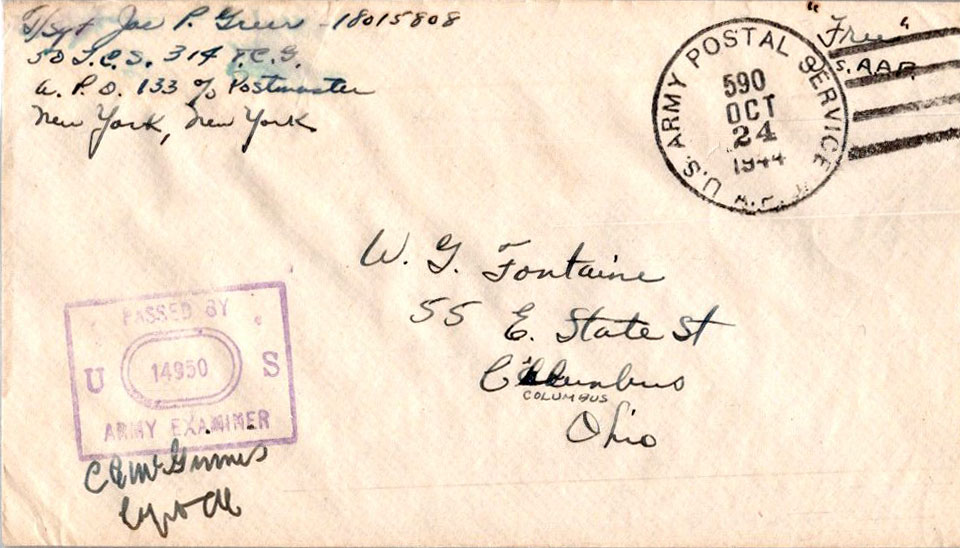 T/Sgt Joe P. Greer - 18015808
50 T.C.S. 314 T.C.G.
A. P. O. 133 % Postmaster
New York, New York
"Free"
U.S. ARMY POSTAL SERVICE
590
OCT
24
1944
A.P.
S. A.A.F.
W. G. Fontaine
55 E. State St
Columbus
COLUMBUS
Ohio
PASSED BY
U 14950 S
ARMY EXAMINER
Capt AC